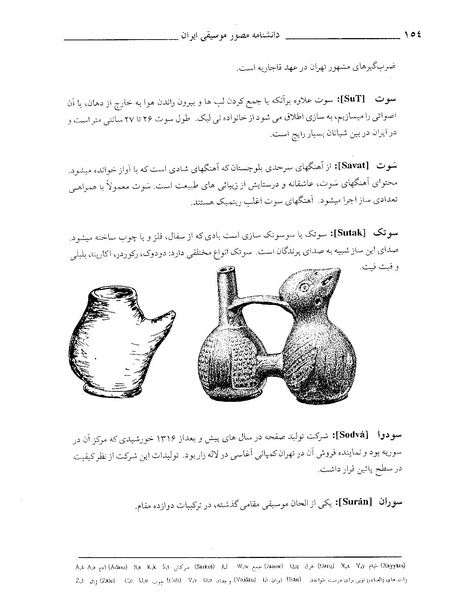 ۱۵۴ دانشنامه مصور موسیقی ایران
ضرب‌گیرهای مشهور تهران در عهد قاجاریه است.
سوت [SuT]: سوت علاوه برآنکه با جمع کردن لب ها و بیرون راندن هوا به خارج از دهان، با آن
اصواتی را میسازیم، به سازی اطلاق می شود از خانواده نی لبک. طول سوت ۲۶ تا ۲۷ سانتی متر است و
در ایران در بین شبانان بسیار رایج است.
سَوت [Savat]: از آهنگهای سرحدی بلوچستان که آهنگهای شادی است که با آواز خوانده میشود.
محتوای آهنگهای سَوت، عاشقانه و درستایش از زیبائی های طبیعت است. سَوت معمولاً با همراهی
تعدادی ساز اجرا میشود. آهنگهای سوت اغلب ریتمیک هستند.
سوتک [Sutak]: سوتک یا سوسوتک سازی است بادی که از سفال، فلز و یا چوب ساخته میشود.
صدای این ساز شبیه به صدای پرندگان است. سوتک انواع مختلفی دارد: دودوک، رکوردر، اکارینا، بلبلی
و فیت فیت.
سودوا [Sodvá]: شرکت تولید صفحه در سال های پیش و بعداز ۱۳۱۶ خورشیدی که مرکز آن در
سوریه بود و نماینده فروش آن در تهران کمپانی آغاسی در لاله زار بود. تولیدات این شرکت از نظر کیفیت
در سطح پائین قرار داشت.
سوران [Surán]: یکی از الحان موسیقی مقامی گذشته، در ترکیبات دوازده مقام.